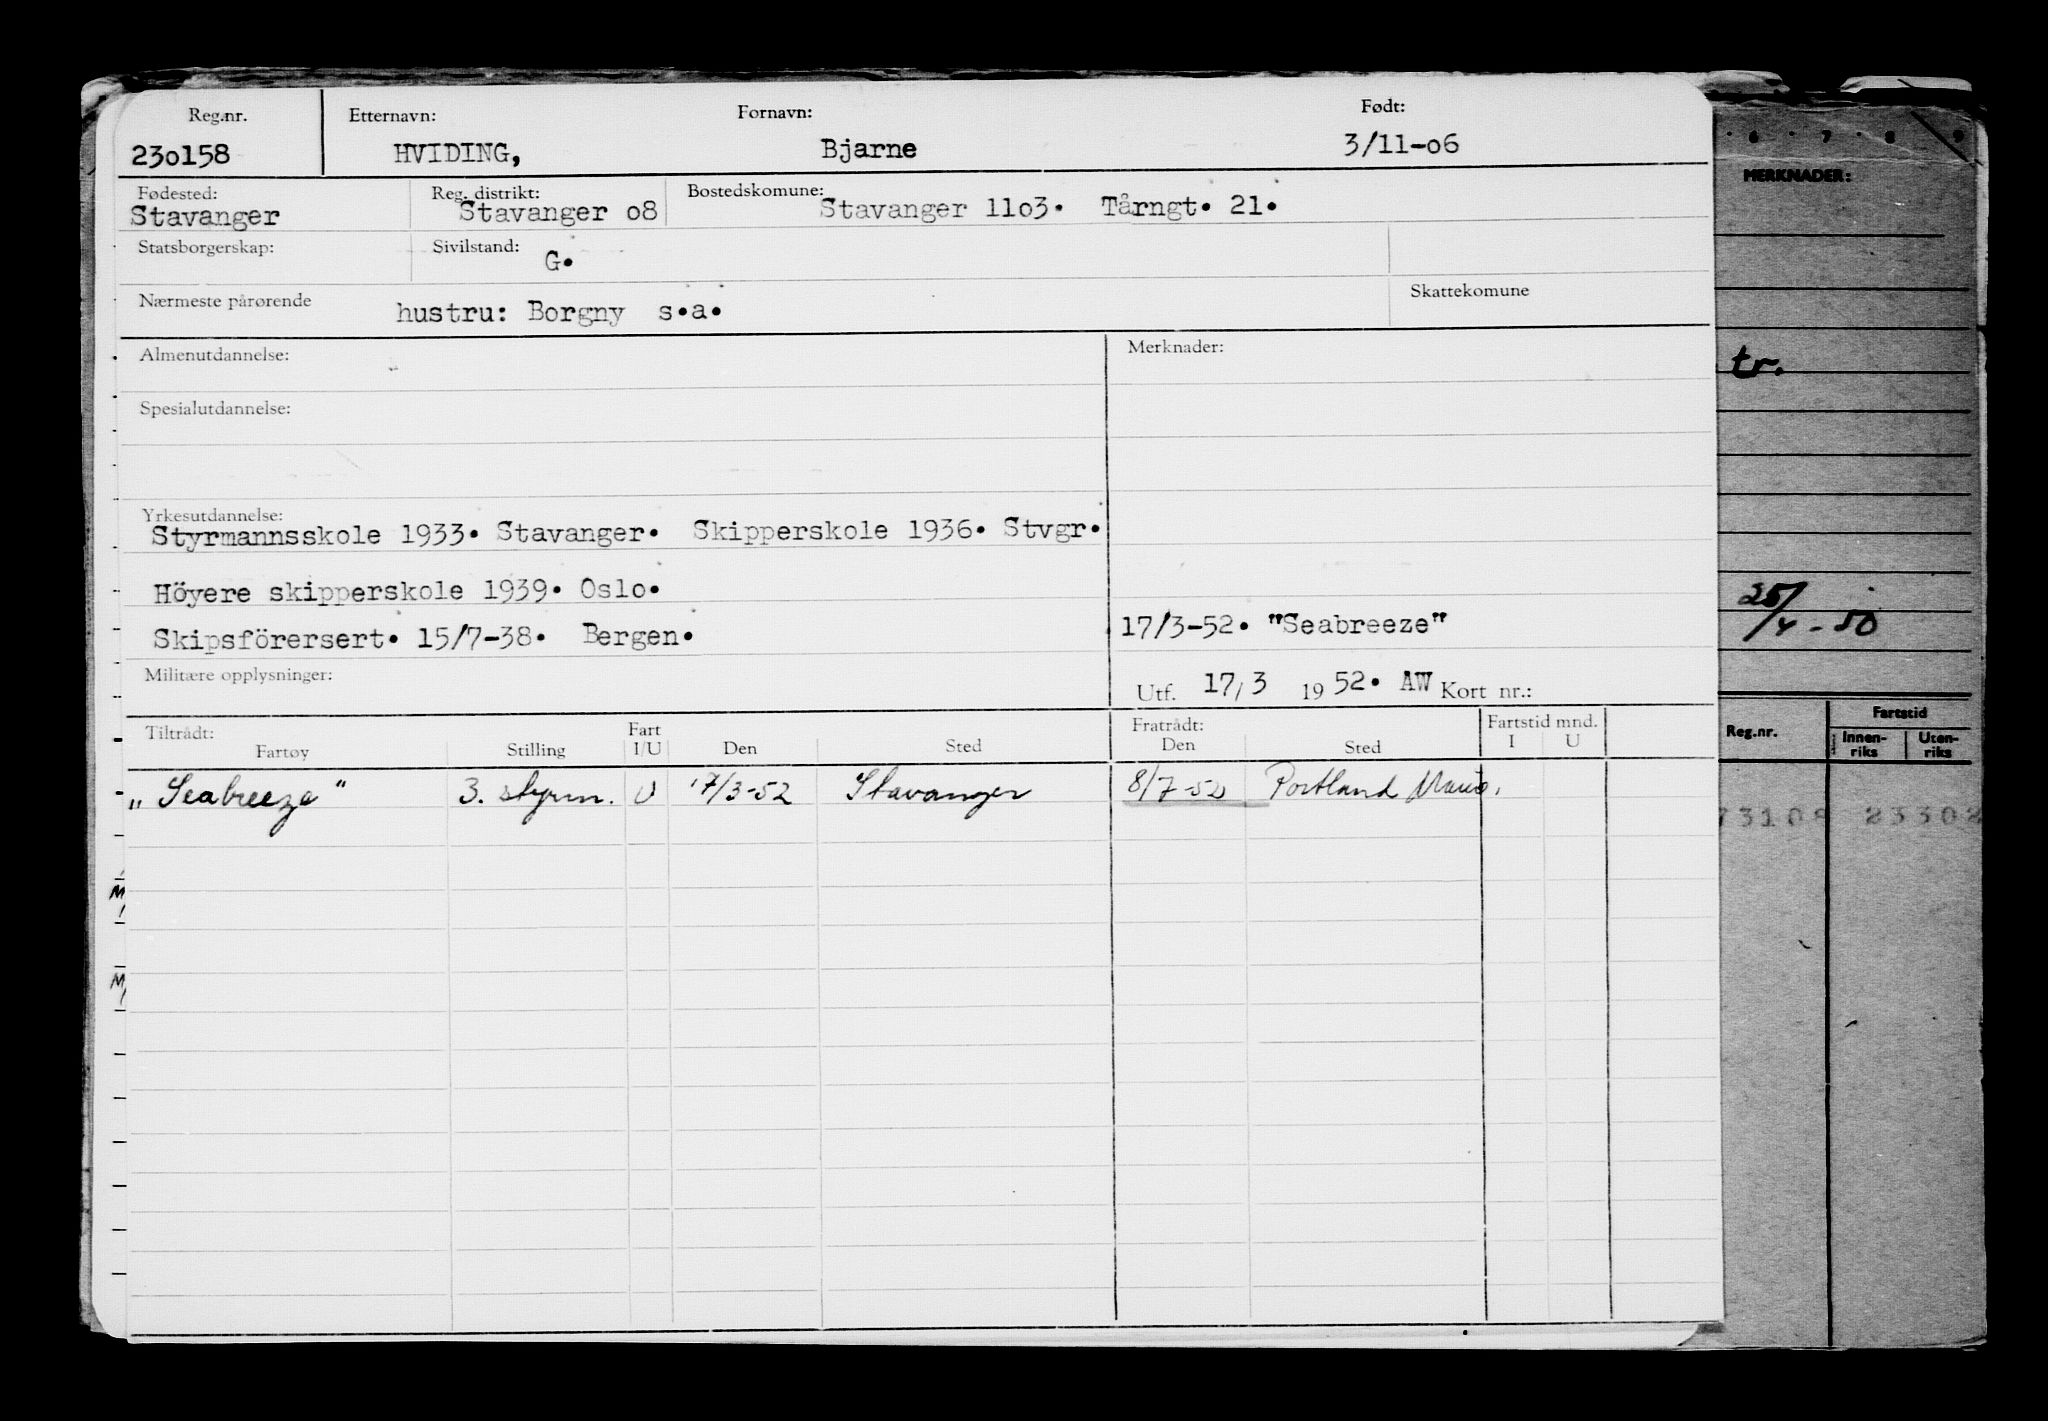 Reg.nr. Etternavn: Fornavn: Født:
23o158 HVIDING, Bjarne 3/11-o6
Fødested: Reg. distrikt: Bostedskomune:
Stavanger Stavanger o8 Stavanger 11o3. Tårngt. 21.
Statsborgerskap: Sivilstand: G.
Nærmeste pårørende hustru: Borgny s.a. Skattekomune
Almenutdannelse: Merknader:
Spesialutdannelse:
Yrkesutdannelse:
Styrmannsskole 1933. Stavanger. Skipperskole 1936. Stvgr.
Höyere skipperskole 1939. Oslo.
Skipsförersert. 15/7-38. Bergen. 17/3-52. "Seabreeze"
Militære opplysninger: Utf. 17/3 1952. AW Kort nr.:
Tiltrådt: Fart Fratrådt: Fartstid mnd.
Fartøy Stilling I/U Den Sted Den Sted I U
„Seabreeze" 3. styrm. U 17/3-52 Stavanger 8/7-52 Portland
6 7 8 9
MERKNADER:
tr.
25/4-50
Reg.nr. Fartstid
Innen-riks Uten-riks